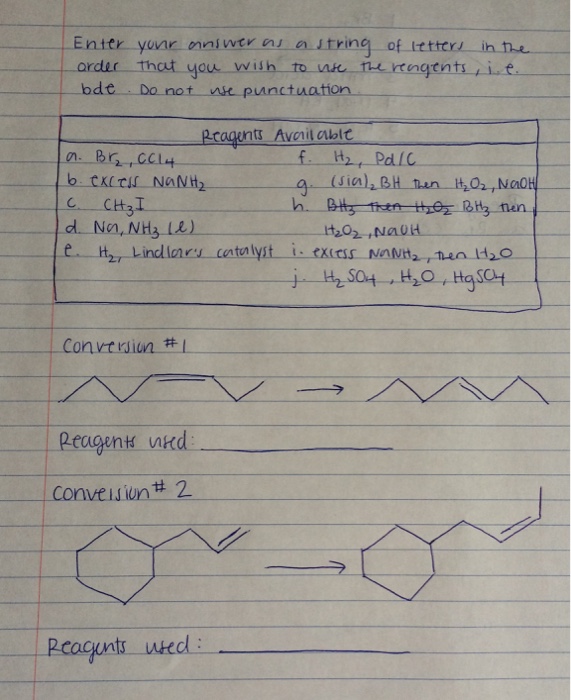 Enter your answer as a string of letters in the
order that you wish to use the reagents, i.e.
bde. Do not use punctuation.
Reagents Available
a. Br₂, CCl₄
b. excess NaNH₂
c. CH₃I
d. Na, NH₃ (l)
e. H₂, Lindlar's catalyst
f. H₂, Pd/C
g. (sia)₂BH then H₂O₂, NaOH
h. BH₃ then H₂O₂ BH₃ then
H₂O₂, NaOH
i. excess NaNH₂, then H₂O
j. H₂SO₄, H₂O, HgSO₄
Conversion #1
Reagents used:
Conversion #2
Reagents used: